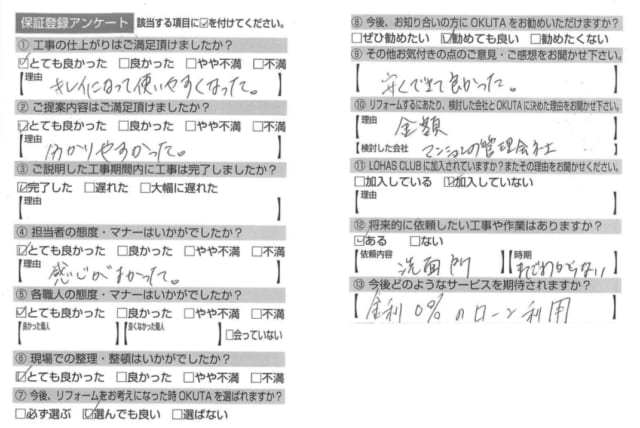 保証登録アンケート 該当する項目に☑を付けてください。
① 工事の仕上がりはご満足頂けましたか？
☑とても良かった □良かった □やや不満 □不満
理由
キレイになって使いやすくなった。
② ご提案内容はご満足頂けましたか？
☑とても良かった □良かった □やや不満 □不満
理由
分かりやすかった。
③ ご説明した工事期間内に工事は完了しましたか？
☑完了した □遅れた □大幅に遅れた
理由
④ 担当者の態度・マナーはいかがでしたか？
☑とても良かった □良かった □やや不満 □不満
理由
感じがよかった。
⑤ 各職人の態度・マナーはいかがでしたか？
☑とても良かった □良かった □やや不満 □不満
良かった職人 良くなかった職人 □会っていない
⑥ 現場での整理・整頓はいかがでしたか？
☑とても良かった □良かった □やや不満 □不満
⑦ 今後、リフォームをお考えになった時OKUTAを選ばれますか？
□必ず選ぶ ☑選んでも良い □選ばない
⑧ 今後、お知り合いの方にOKUTAをお勧めいただけますか？
□ぜひ勧めたい ☑勧めても良い □勧めたくない
⑨ その他お気付きの点のご意見・ご感想をお聞かせ下さい。
安くできて良かった。
⑩ リフォームするにあたり、検討した会社とOKUTAに決めた理由をお聞かせ下さい。
理由
金額
検討した会社 マンションの管理会社
⑪ LOHAS CLUBに加入されていますか？またその理由をお聞かせください。
□加入している ☑加入していない
理由
⑫ 将来的に依頼したい工事や作業はありますか？
☑ある □ない
依頼内容 洗面所 時期 まだわからない
⑬ 今後どのようなサービスを期待されますか？
金利0%のローン利用